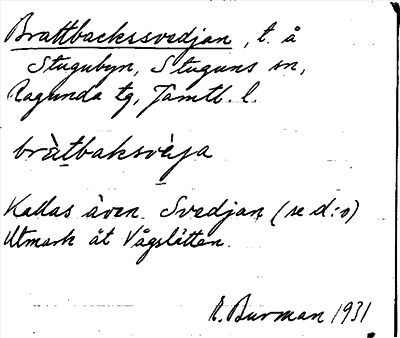 Brattbackssvedjan, t. å
Stugubyn, Stuguns sn,
Ragunda tg, Jämtl. l.
bràtbaksvèja
Kallas även Svedjan (se d:o)
Utmark åt Vågslåtten.
E. Burman 1931